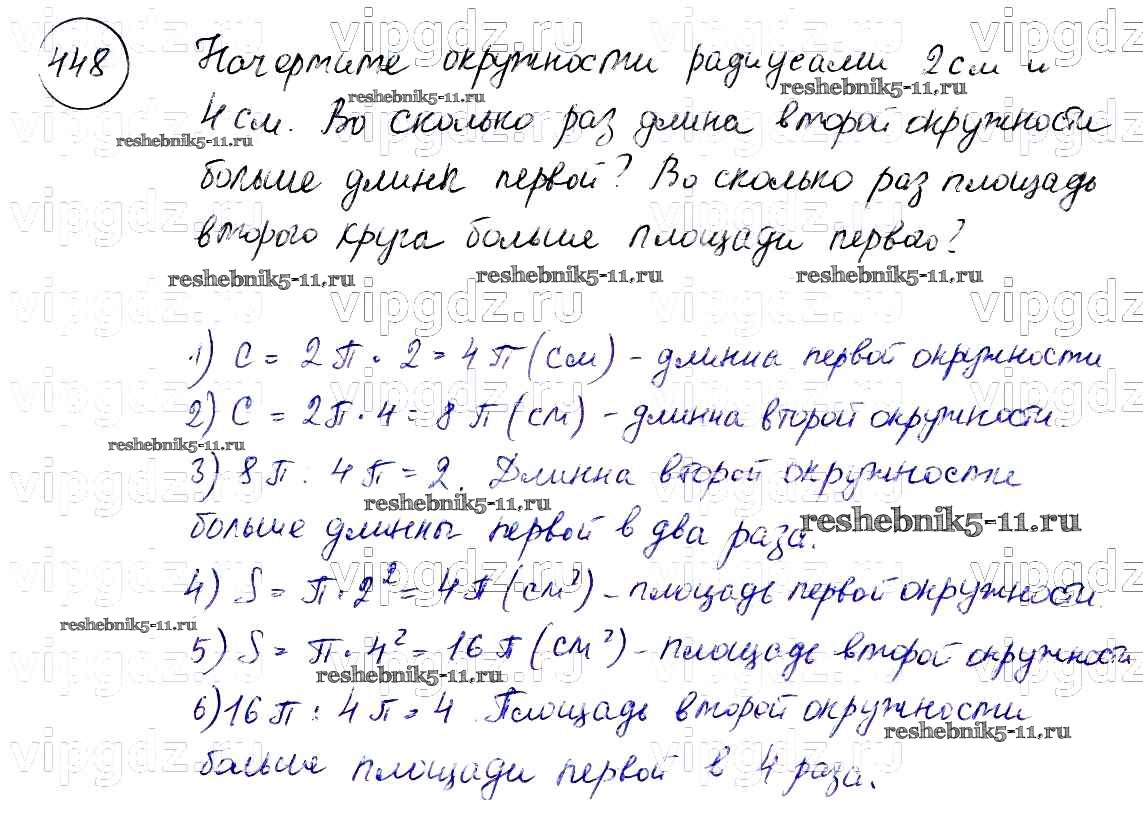 448 Начертите окружности радиусами 2 см и
4 см. Во сколько раз длина второй окружности
больше длины первой? Во сколько раз площадь
второго круга больше площади первого?
1) C = 2π · 2 = 4π (см) - длинна первой окружности
2) C = 2π · 4 = 8π (см) - длинна второй окружности.
3) 8π : 4π = 2. Длинна второй окружности
больше длинны первой в два раза.
4) S = π · 2² = 4π (см²) - площадь первой окружности.
5) S = π · 4² = 16π (см²) - площадь второй окружности
6) 16π : 4π = 4 Площадь второй окружности
больше площади первой в 4 раза.
vipgdz.ru
reshebnik5-11.ru